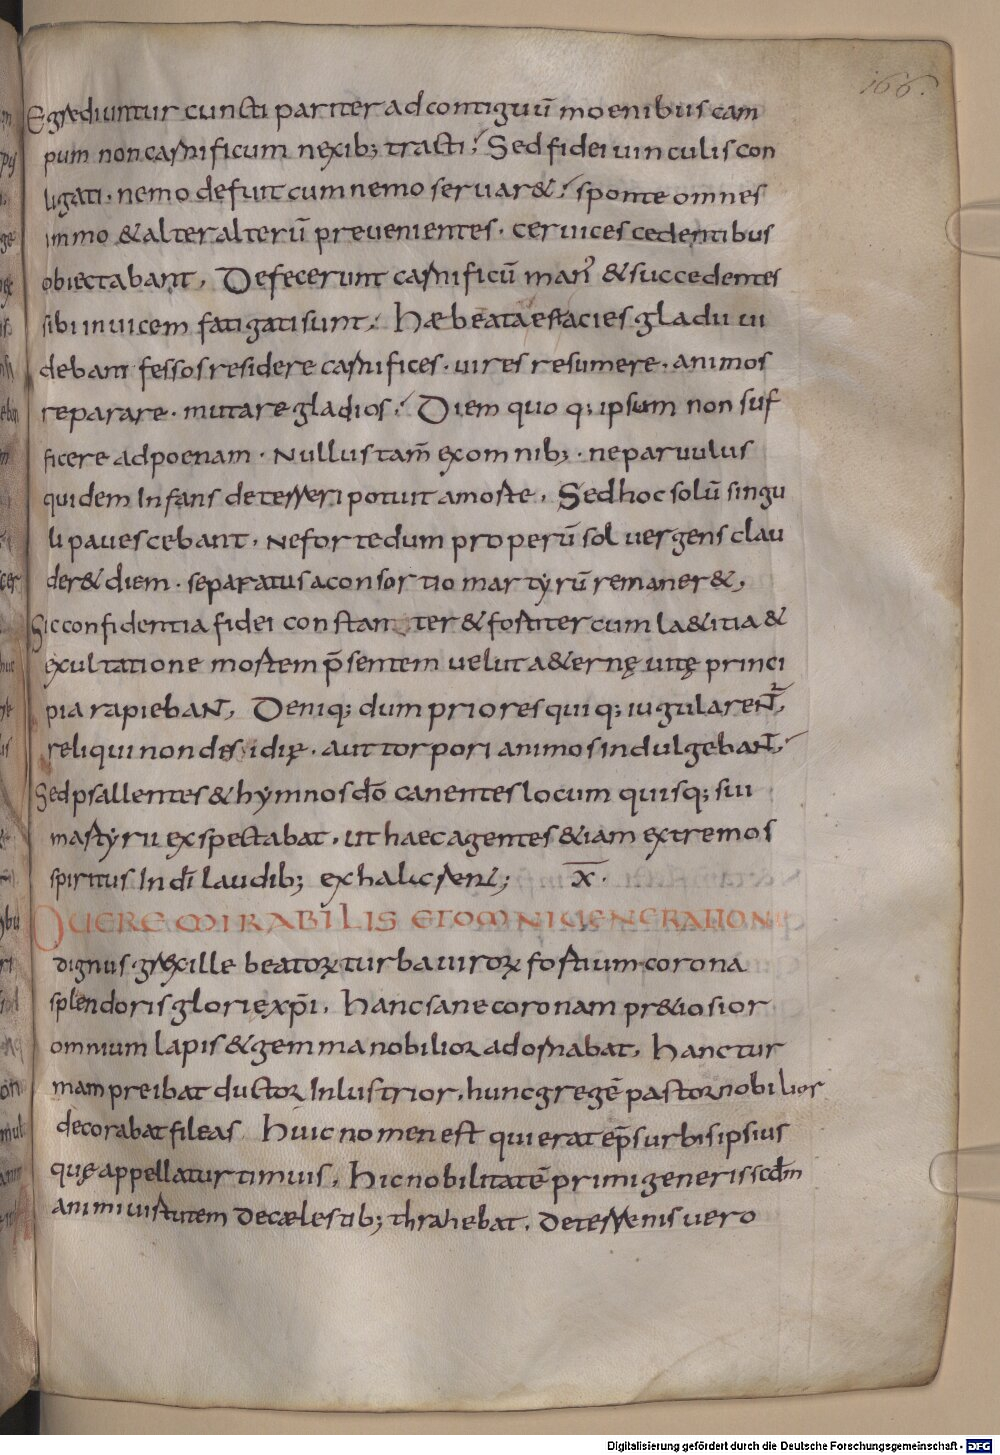 166.
Egrediuntur cuncti pariter ad contiguū moenibus cam
pum non carnificum nexib; tracti; Sed fidei uinculis con
ligati · nemo defuit cum nemo seruar&; sponte omnes
immo & alter alterū preuenientes · ceruices cedentibus
obiectabant, Defecerunt carnificū man' & succedentes
sibi inuicem fatigati sunt; Hæ beata est acies gladii ui
debant fessos residere carnifices · uires resumere · animos
reparare · mutare gladios; Diem quo q; ipsum non suf
ficere ad poenam · Nullus tam̄ ex omnib; · ne paruulus
quidem Infans deterreri potuit a morte, Sed hoc solū singu
li pauescebant, Ne forte dum properū sol uergens clau
der& diem · separatus a consortio martyrū remaner&,
Sic confidentia fidei constanter & fortiter cum la&itia &
exultatione mortem p̄sentem uelut a&ernę uitę princi
pia rapiebant, Deniq; dum priores quiq; iugularent̄,
reliqui non desidię · aut torpori animos indulgebant,
Sed psallentes & hymnos dō canentes locum quisq; sui
martyrii exspectabat, ut haec agentes &iam extremos
spiritus In dī laudib; exhalarent; X̄.
QUERE MIRABILIS ET OMNI UENERATION
dignus grex ille beatoꝝ turba uiroꝝ fortium corona
splendoris glorię xp̄i, Hanc sane coronam pr&iosior
omnium lapis & gemma nobilior adornabat, Hanc tur
mam preibat ductor Inlustrior, hunc gregē pastor nobilior
decorabat fileas Huic nomen est qui erat ep̄s urbis ipsius
quę appellatur timuis, Hic nobilitatē primi generis scdm̄
animi uirtutem de cælestib; thrahebat, de terrenis uero
Digitalisierung gefördert durch die Deutsche Forschungsgemeinschaft - DFG